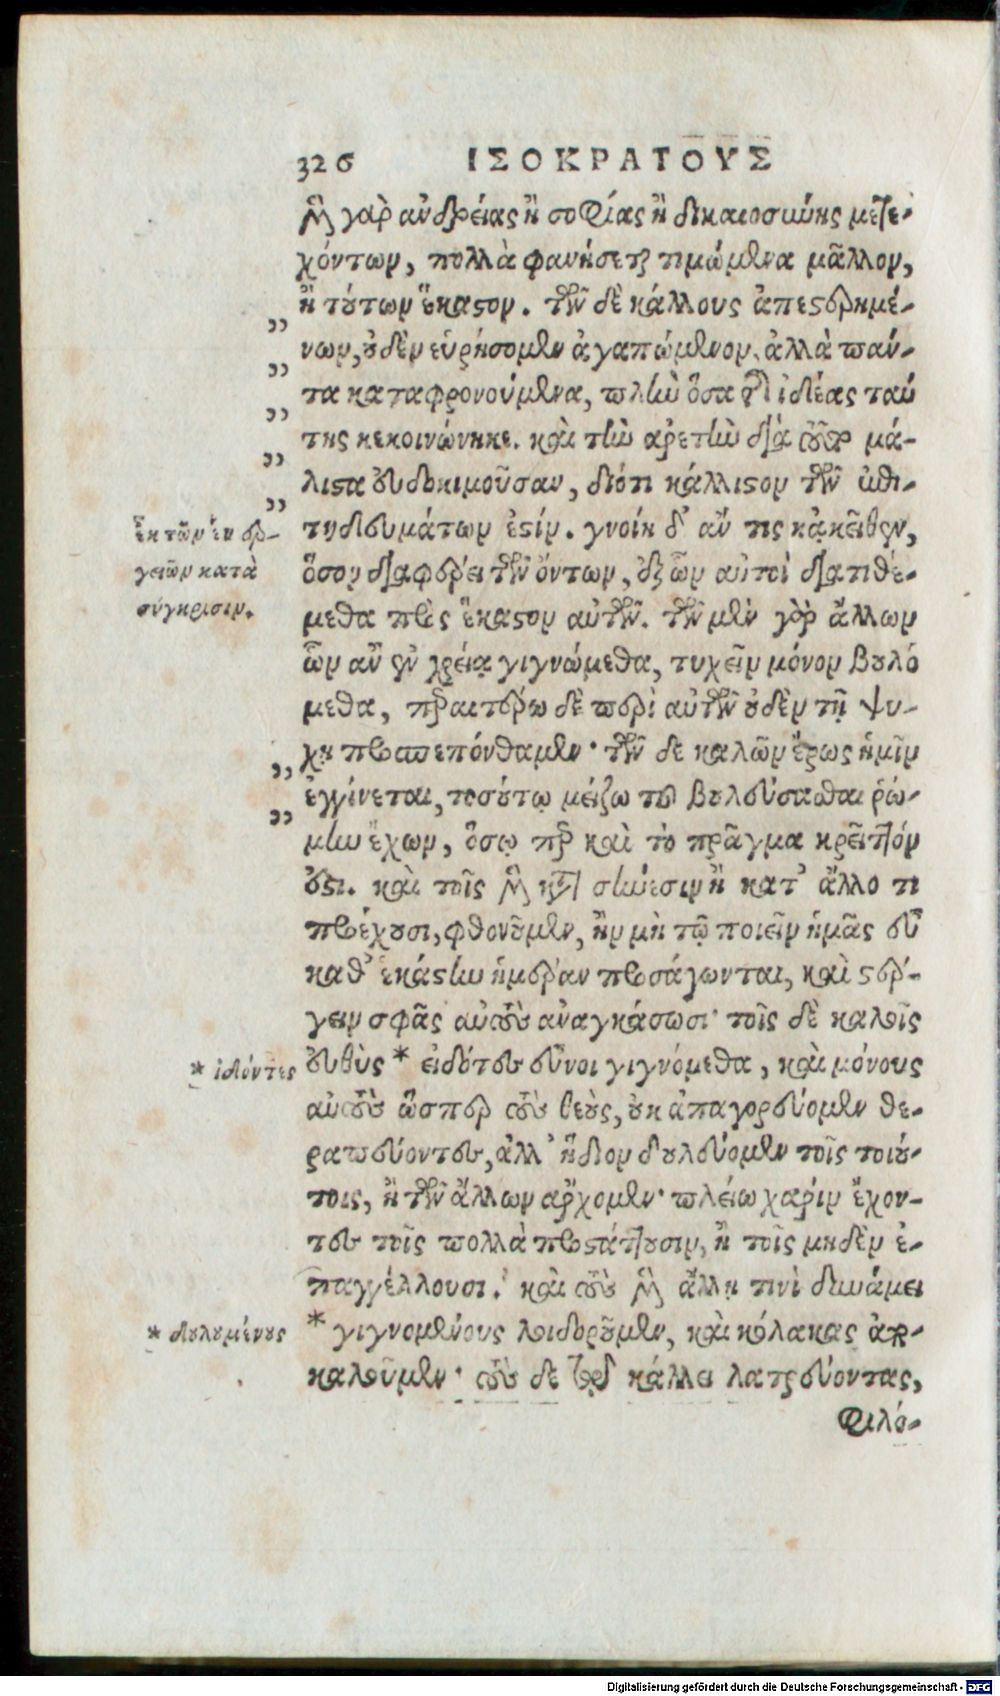 326 ΙΣΟΚΡΑΤΟΥΣ
μὴ γὰρ ἀνδρείας ἢ σοφίας ἢ δικαιοσύνης μετε-
χόντων, πολλὰ φανήσεται τιμώμενα μᾶλλον,
ἢ τούτων ἕκαστον. τῶν δὲ κάλλους ἀπεστερημέ-
νων, οὐδὲν εὑρήσομεν ἀγαπώμενον, ἀλλὰ πάν-
τα καταφρονούμενα, πλὴν ὅσα τῆς ἰδέας ταύ
της κεκοινώνηκε. καὶ τὴν ἀρετὴν διὰ τοῦτο μά-
λιστα εὐδοκιμοῦσαν, διότι κάλλιστον τῶν ἐπι-
τηδευμάτων ἐστίν. γνοίη δ' ἄν τις κἀκεῖθεν,
ὅσον διαφέρει τῶν ὄντων, ἐξ ὧν αὐτοὶ διατιθέ-
μεθα πρὸς ἕκαστον αὐτῶν. τῶν μὲν γὰρ ἄλλων
ὧν ἂν ἐν χρείᾳ γιγνώμεθα, τυχεῖν μόνον βουλό
μεθα, περαιτέρω δὲ περὶ αὐτῶν οὐδὲν τῇ ψυ-
χῇ προσπεπόνθαμεν· τῶν δὲ καλῶν ἔρως ἡμῖν
ἐγγίνεται, τοσούτῳ μείζω τοῦ βουλεύσασθαι ῥώ-
μην ἔχων, ὅσῳ περ καὶ τὸ πρᾶγμα κρεῖττόν
ἐστι. καὶ τοῖς μὲν κατὰ σύνεσιν ἢ κατ' ἄλλο τι
προέχουσι, φθονοῦμεν, ἢν μὴ τῷ ποιεῖν ἡμᾶς εὖ
καθ' ἑκάστην ἡμέραν προσάγωνται, καὶ στέρ-
γειν σφᾶς αὐτοὺς ἀναγκάσωσι· τοῖς δὲ καλοῖς
εὐθὺς * εἰδότες εὖνοι γιγνόμεθα, καὶ μόνους
αὐτοὺς ὥσπερ τοὺς θεοὺς, οὐκ ἀπαγορεύομεν θε-
ραπεύοντες, ἀλλ' ἥδιον δουλεύομεν τοῖς τοιού-
τοις, ἢ τῶν ἄλλων ἄρχομεν· πλείω χάριν ἔχον-
τες τοῖς πολλὰ προστάττουσιν, ἢ τοῖς μηδὲν ἐ-
παγγέλλουσι. καὶ τοὺς μὲν ἄλλῃ τινὶ δυνάμει
* γιγνομένους λοιδοροῦμεν, καὶ κόλακας ἀπο-
καλοῦμεν· τοὺς δὲ τῷ κάλλει λατρεύοντας,
φιλό-
ἐκ τῶν ἐν ερ-
γειῶν κατὰ
σύγκρισιν.
* ἰδόντες
* δουλουμένους
Digitalisierung gefördert durch die Deutsche Forschungsgemeinschaft - DFG